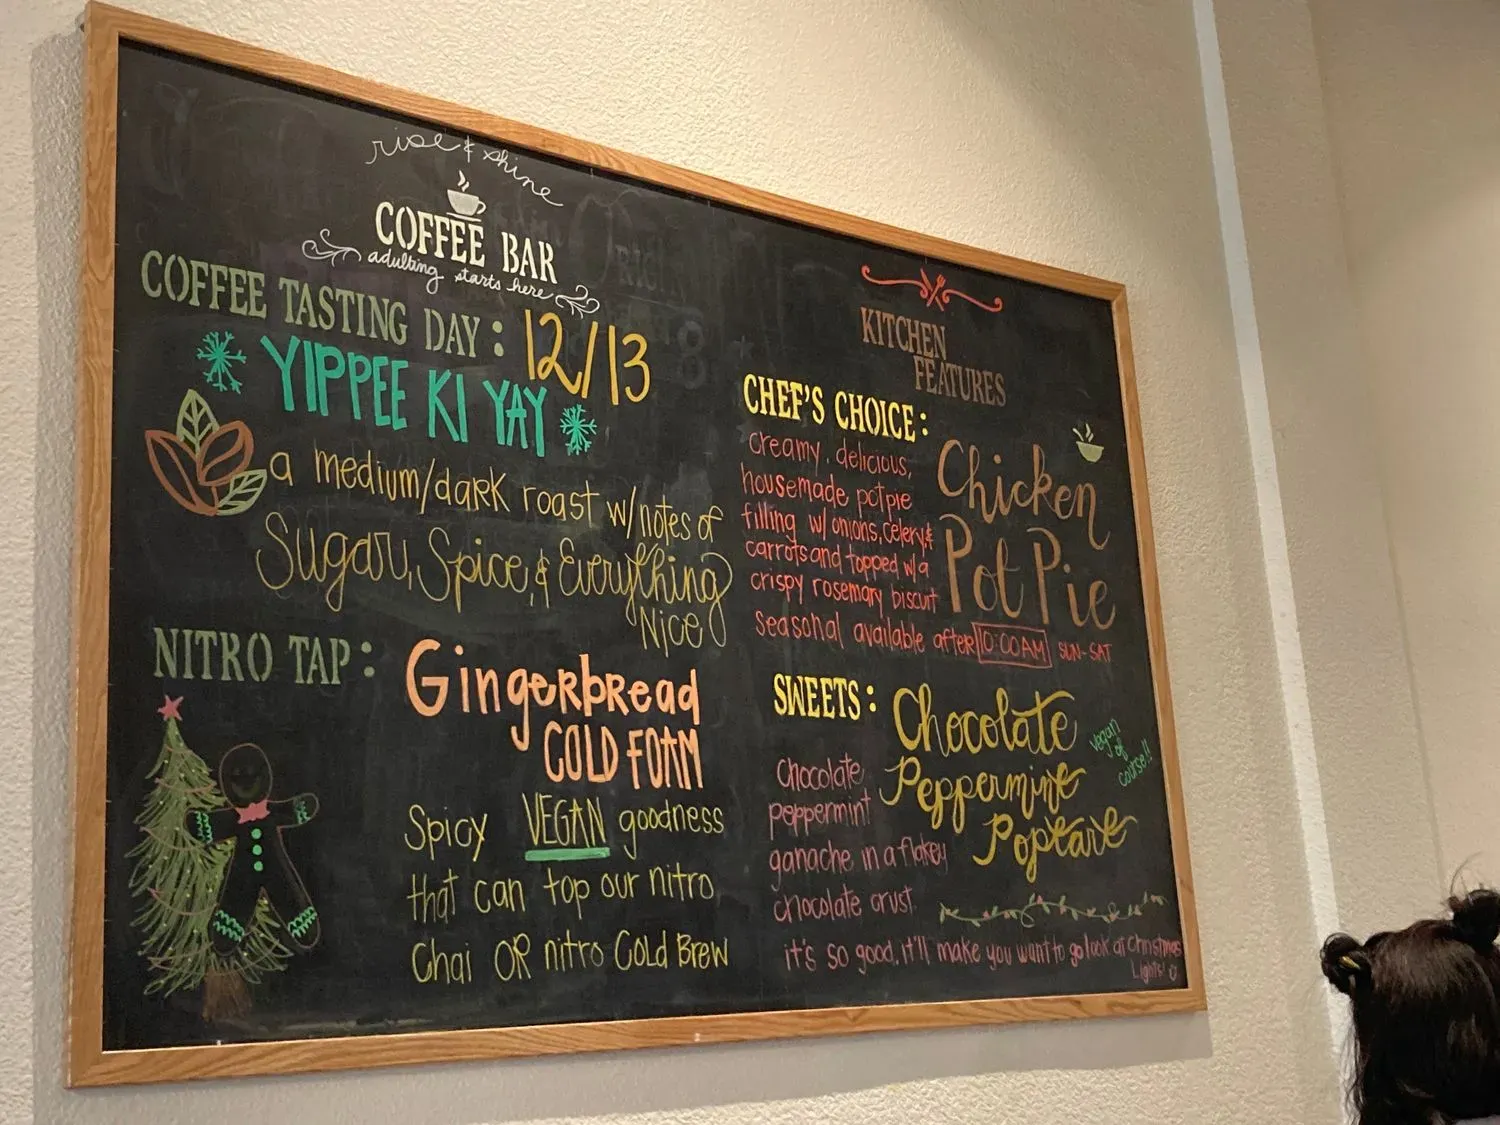 rise & shine
COFFEE BAR
adulting starts here
COFFEE TASTING DAY: 12/13
YIPPEE KI YAY
a medium/dark roast w/notes of
Sugar, Spice, & Everything
Nice
NITRO TAP:
Gingerbread
COLD FOAM
Spicy VEGAN goodness
that can top our nitro
Chai OR nitro Cold Brew
KITCHEN
FEATURES
CHEF'S CHOICE:
Chicken
Pot Pie
creamy, delicious,
housemade potpie
filling w/onions, celery &
carrots and topped w/a
crispy rosemary biscuit
seasonal available after 10:00AM SUN-SAT
SWEETS:
Chocolate
Peppermint
Poptart
vegan
of
course!!
Chocolate
peppermint
ganache in a flakey
chocolate crust.
it's so good, it'll make you want to go look at Christmas
Lights!